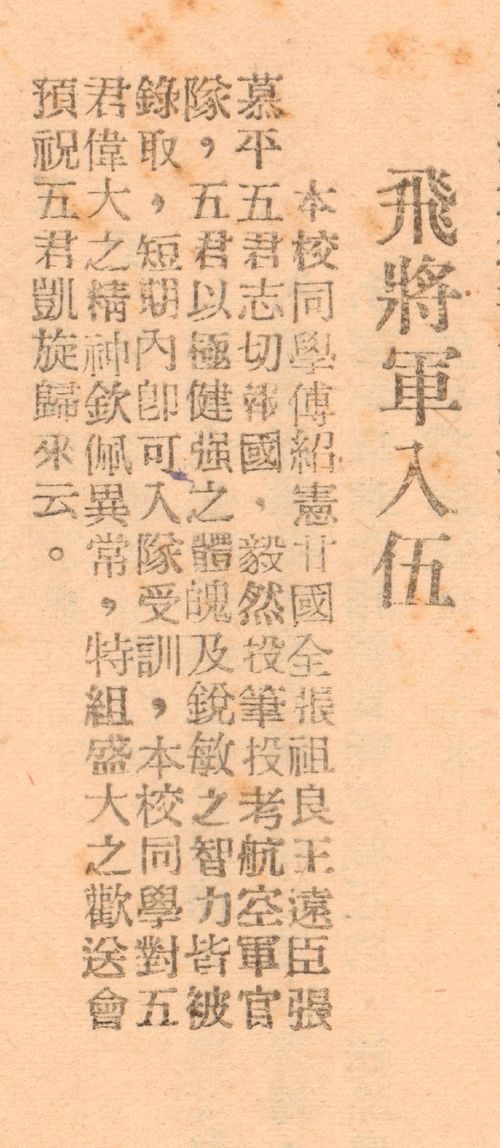 飛將軍入伍
本校同學傅紹憲甘國全張祖良王遠臣張
慕平五君志切報國，毅然投筆投考航空軍官
隊，五君以極健强之體魄及銳敏之智力皆被
錄取，短期內卽可入隊受訓，本校同學對五
君偉大之精神欽佩異常，特組盛大之歡送會
預祝五君凱旋歸來云。